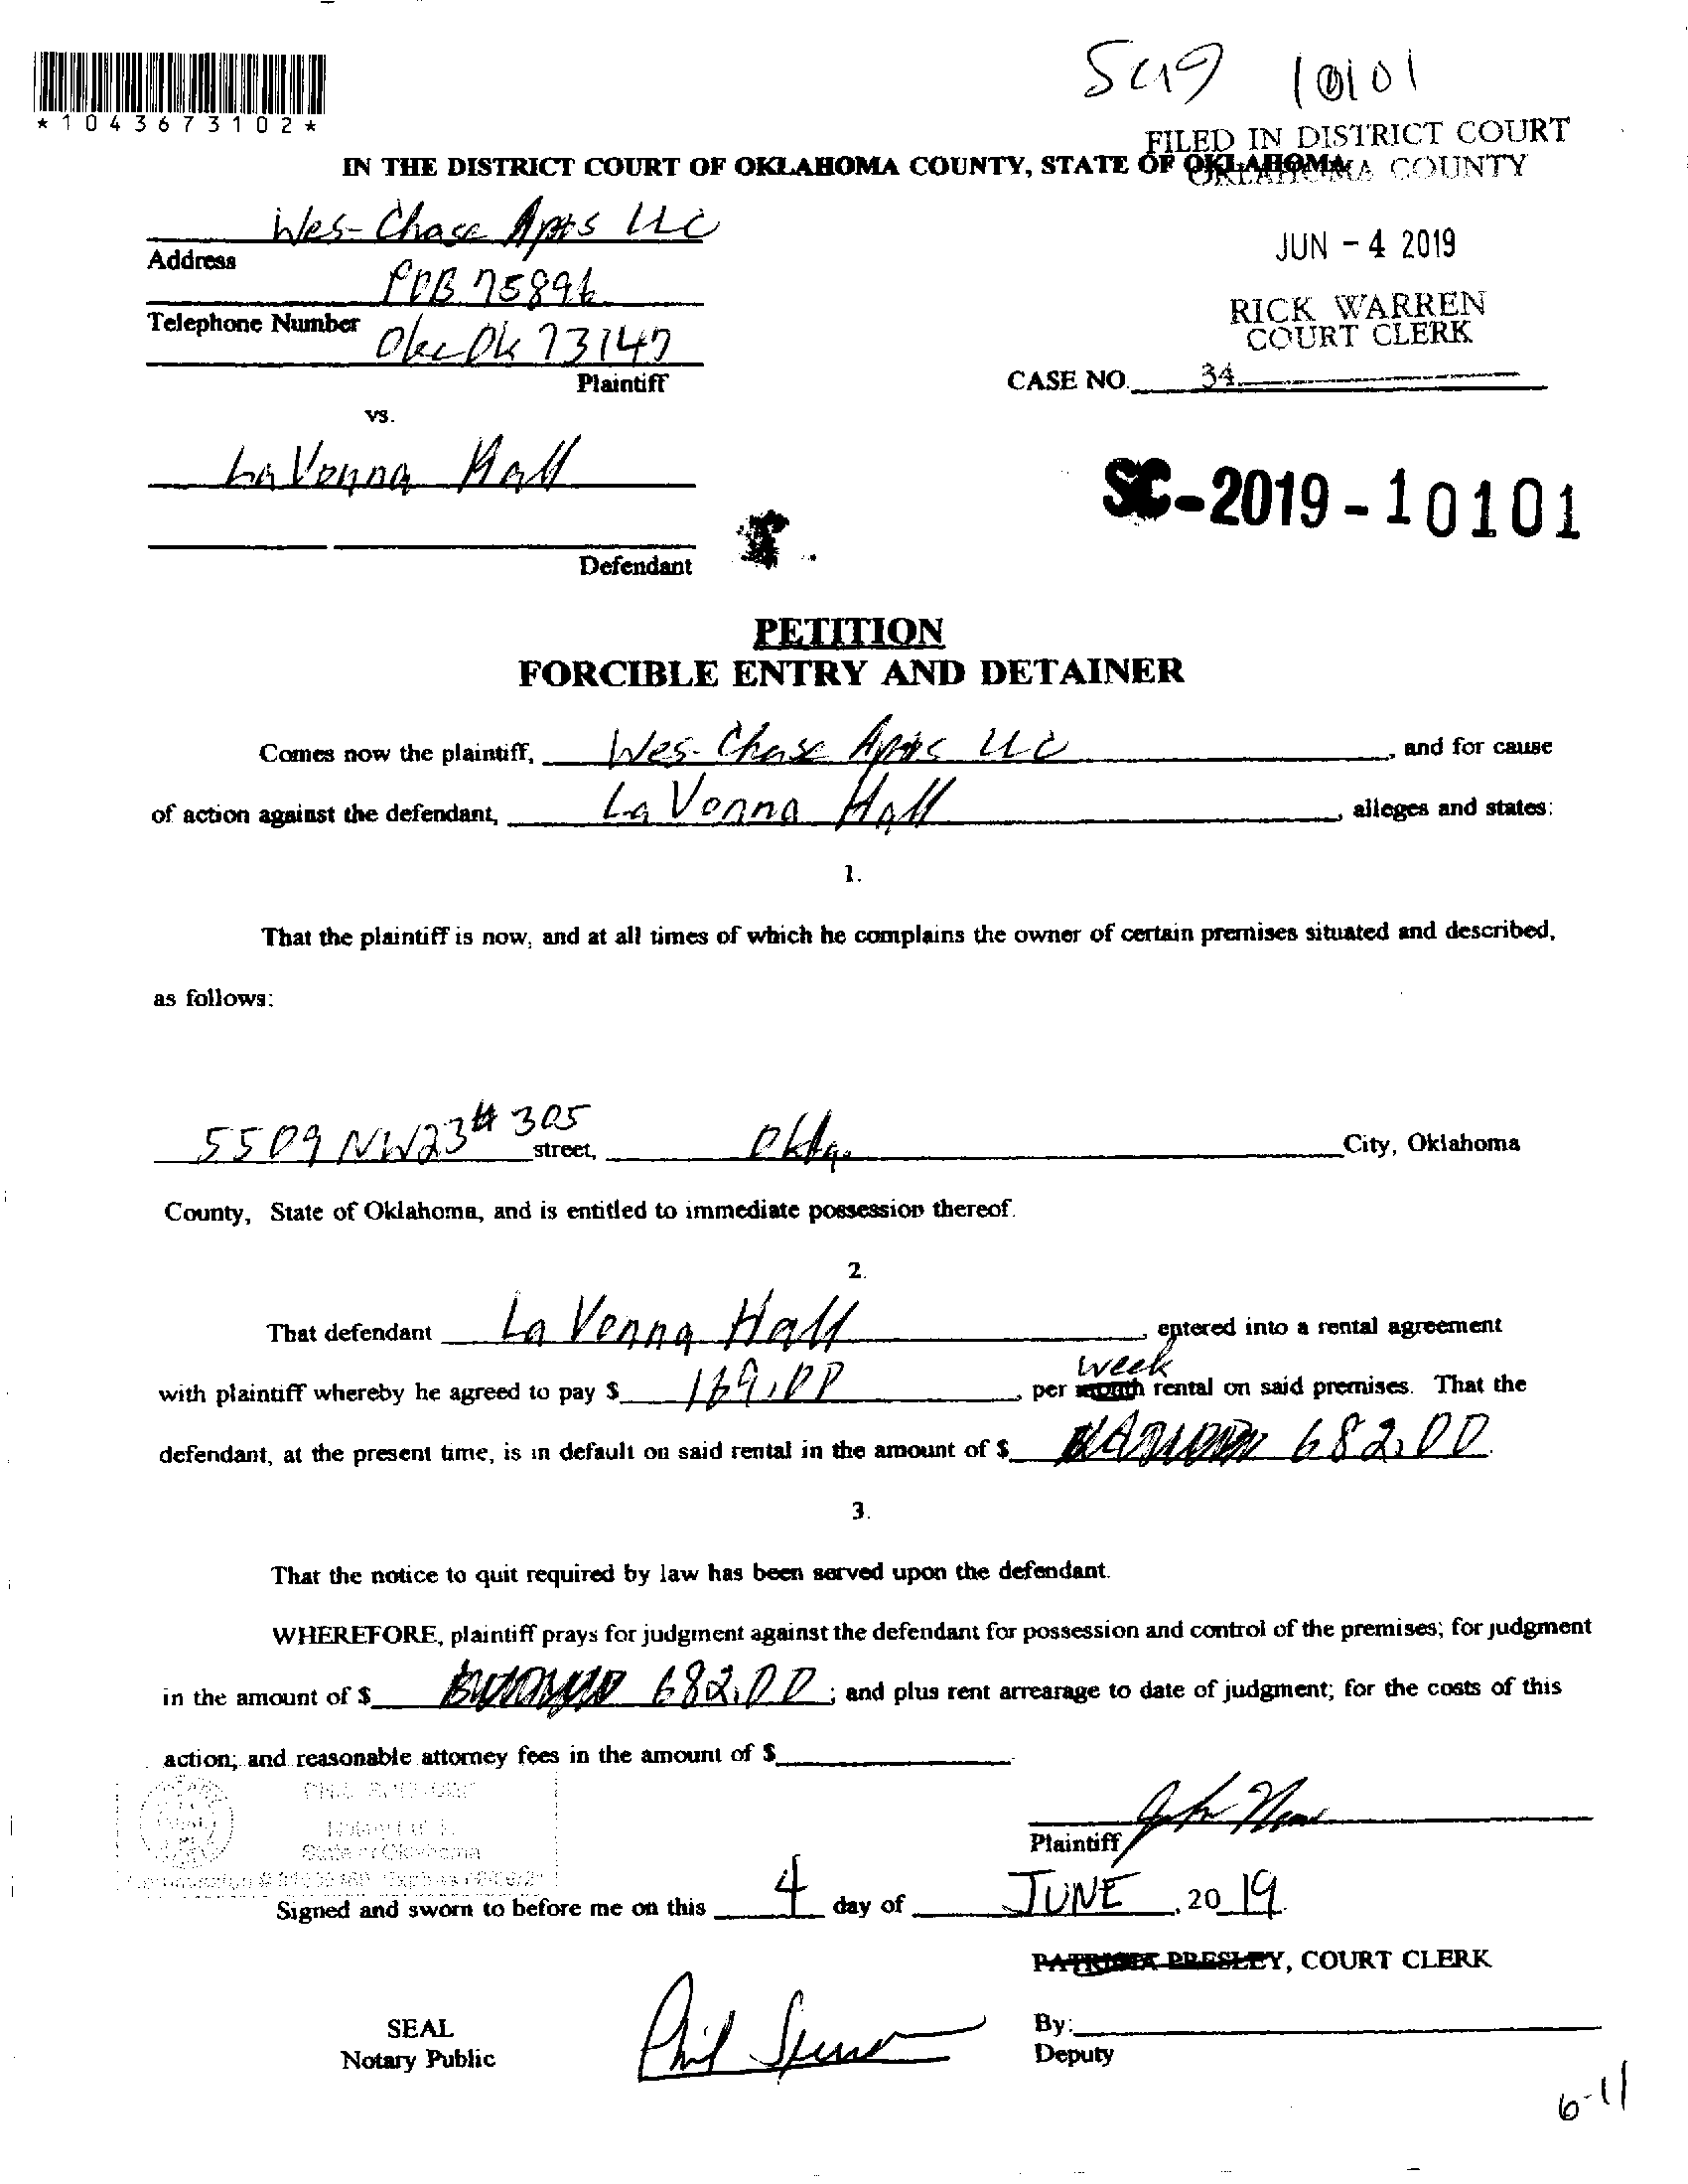 SC19 10101
*1043673102*
FILED IN DISTRICT COURT
OKLAHOMA COUNTY
IN THE DISTRICT COURT OF OKLAHOMA COUNTY, STATE OF OKLAHOMA
Wes-Chase Apts LLC
JUN - 4 2019
Address
POB 75896
RICK WARREN
COURT CLERK
Telephone Number
Okc Ok 73147
Plaintiff
CASE NO. 34
vs.
LaVonna Hall
SC-2019-10101
Defendant
PETITION
FORCIBLE ENTRY AND DETAINER
Comes now the plaintiff, Wes-Chase Apts LLC, and for cause
of action against the defendant, LaVonna Hall, alleges and states:
1.
That the plaintiff is now, and at all times of which he complains the owner of certain premises situated and described,
as follows:
5509 NW23 # 305 street, Okla. City, Oklahoma
County, State of Oklahoma, and is entitled to immediate possession thereof.
2.
That defendant LaVonna Hall, entered into a rental agreement
week
with plaintiff whereby he agreed to pay $ 169.00, per month rental on said premises. That the
defendant, at the present time, is in default on said rental in the amount of $ 682.00.
3.
That the notice to quit required by law has been served upon the defendant.
WHEREFORE, plaintiff prays for judgment against the defendant for possession and control of the premises; for judgment
in the amount of $ 682.00; and plus rent arrearage to date of judgment; for the costs of this
action; and reasonable attorney fees in the amount of $
State of Oklahoma
Plaintiff
Signed and sworn to before me on this 4 day of JUNE, 20 19.
PATRICIA PRESLEY, COURT CLERK
SEAL
Notary Public
By:
Deputy
6-11